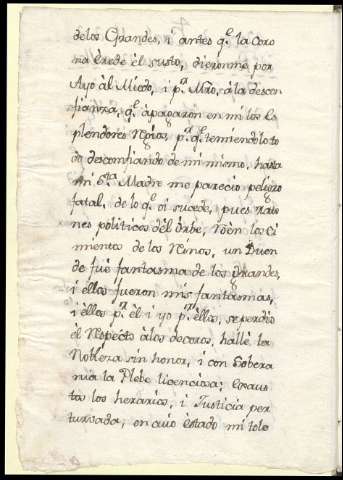 delos Grandes, i antes q.e la Coro
na herede èl susto, dieronme por
Ayo àl Miedo, i p.r Mro, àla descon
fianza, q.e àpagaron en mi los es
plendores Regios, p.r q.e temiendolo to
do desconfiando de mi mismo, hasta
mi S.ta Madre me parecio peligro
fatal, de lo q.e oi sucede, pues
nes politicos dèl Orbe, los Ci
mientos de los Reinos, un Duen
de fuè fantasma de los Grandes,
i èllos fueron mis fantasmas,
i èllos p.r èl i yo p.r èllos, se perdio
èl Respecto àlos decoros, hallè la
Nobleza sin honor, i con Sobera
nia la Plebe licenciosa; Exaus
tos los herarios, i Justicia per
turvada, en cuio èstado mi tole